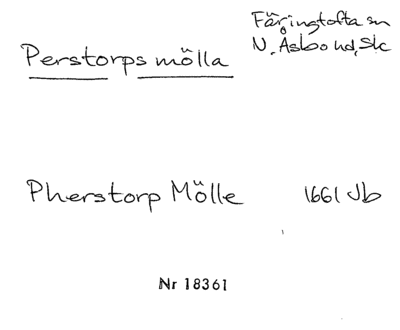 Färingtofta sn
Perstorps mölla
N. Åsbo hd, Sk
Pherstorp Mölle 1661 Jb
Nr 18361